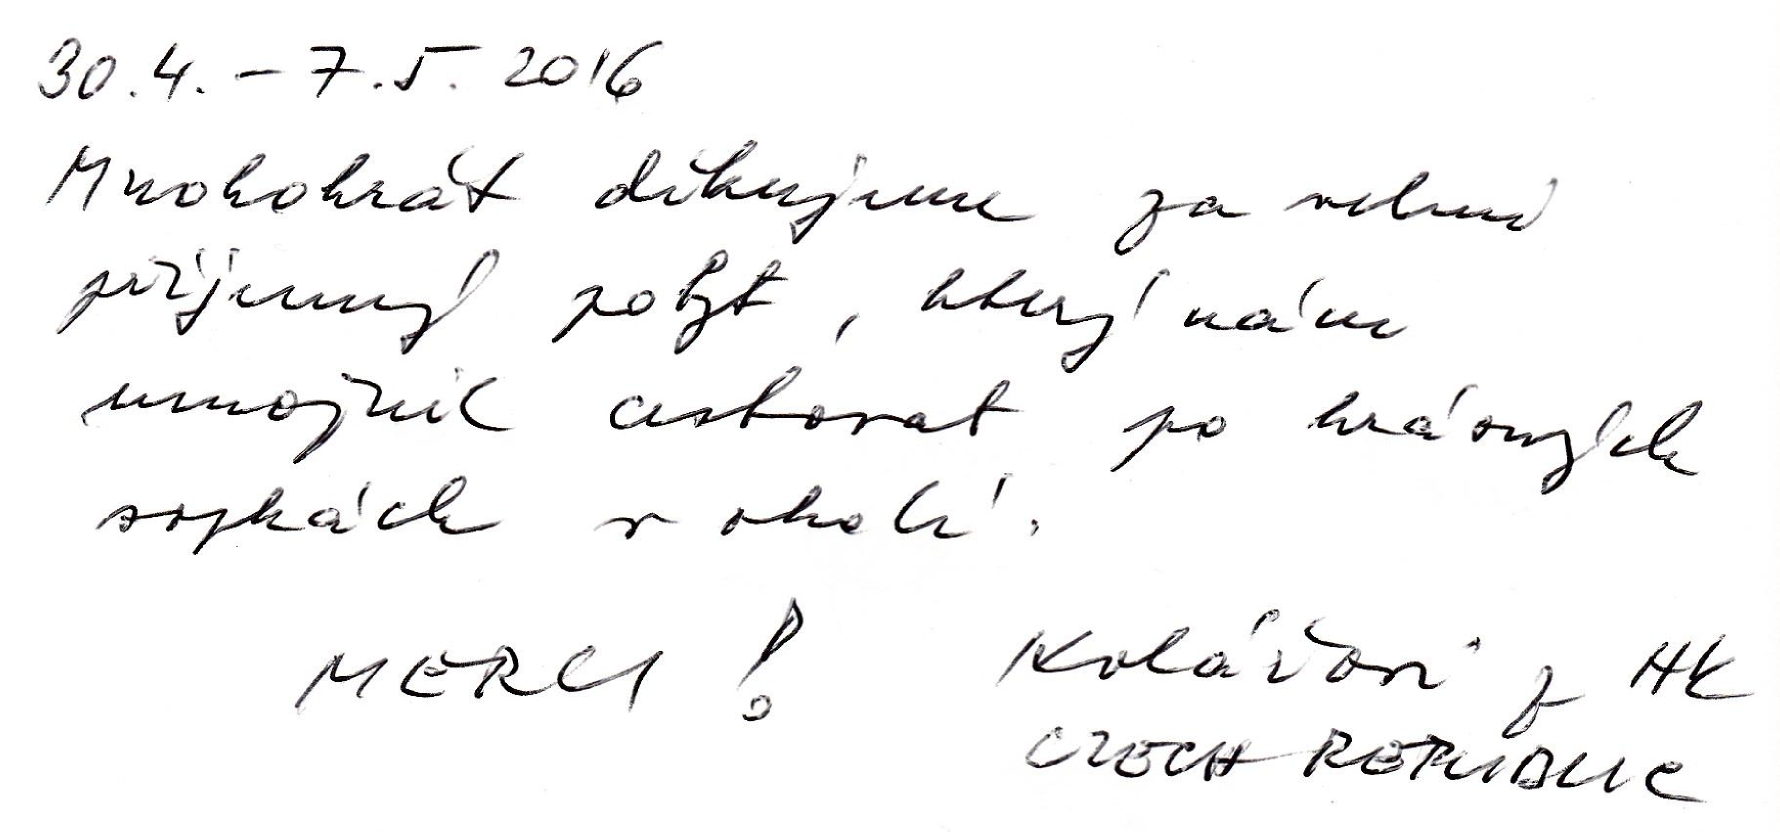 30.4. – 7.5. 2016
Mnohokrát děkujeme za velmi
příjemný pobyt, který nám
umožnil cestovat po krásných
sopkách v okolí.
MERCI! Kolářovi z HK
CZECH REPUBLIC